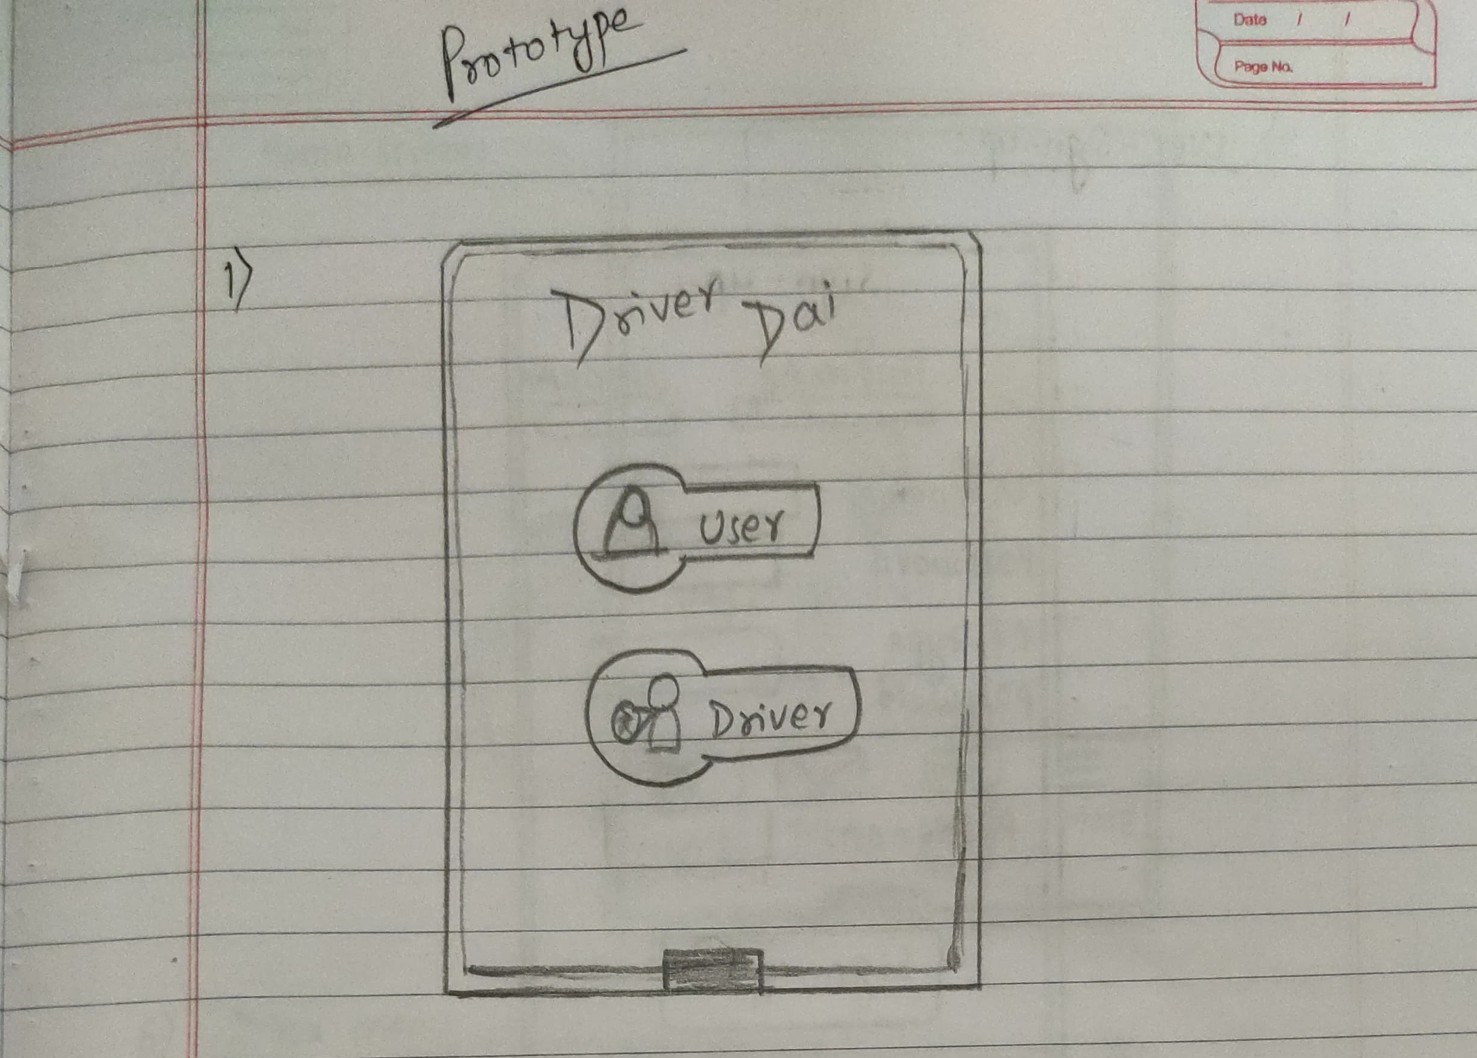 Prototype
Date / /
Page No.
1)
Driver Dai
User
Driver